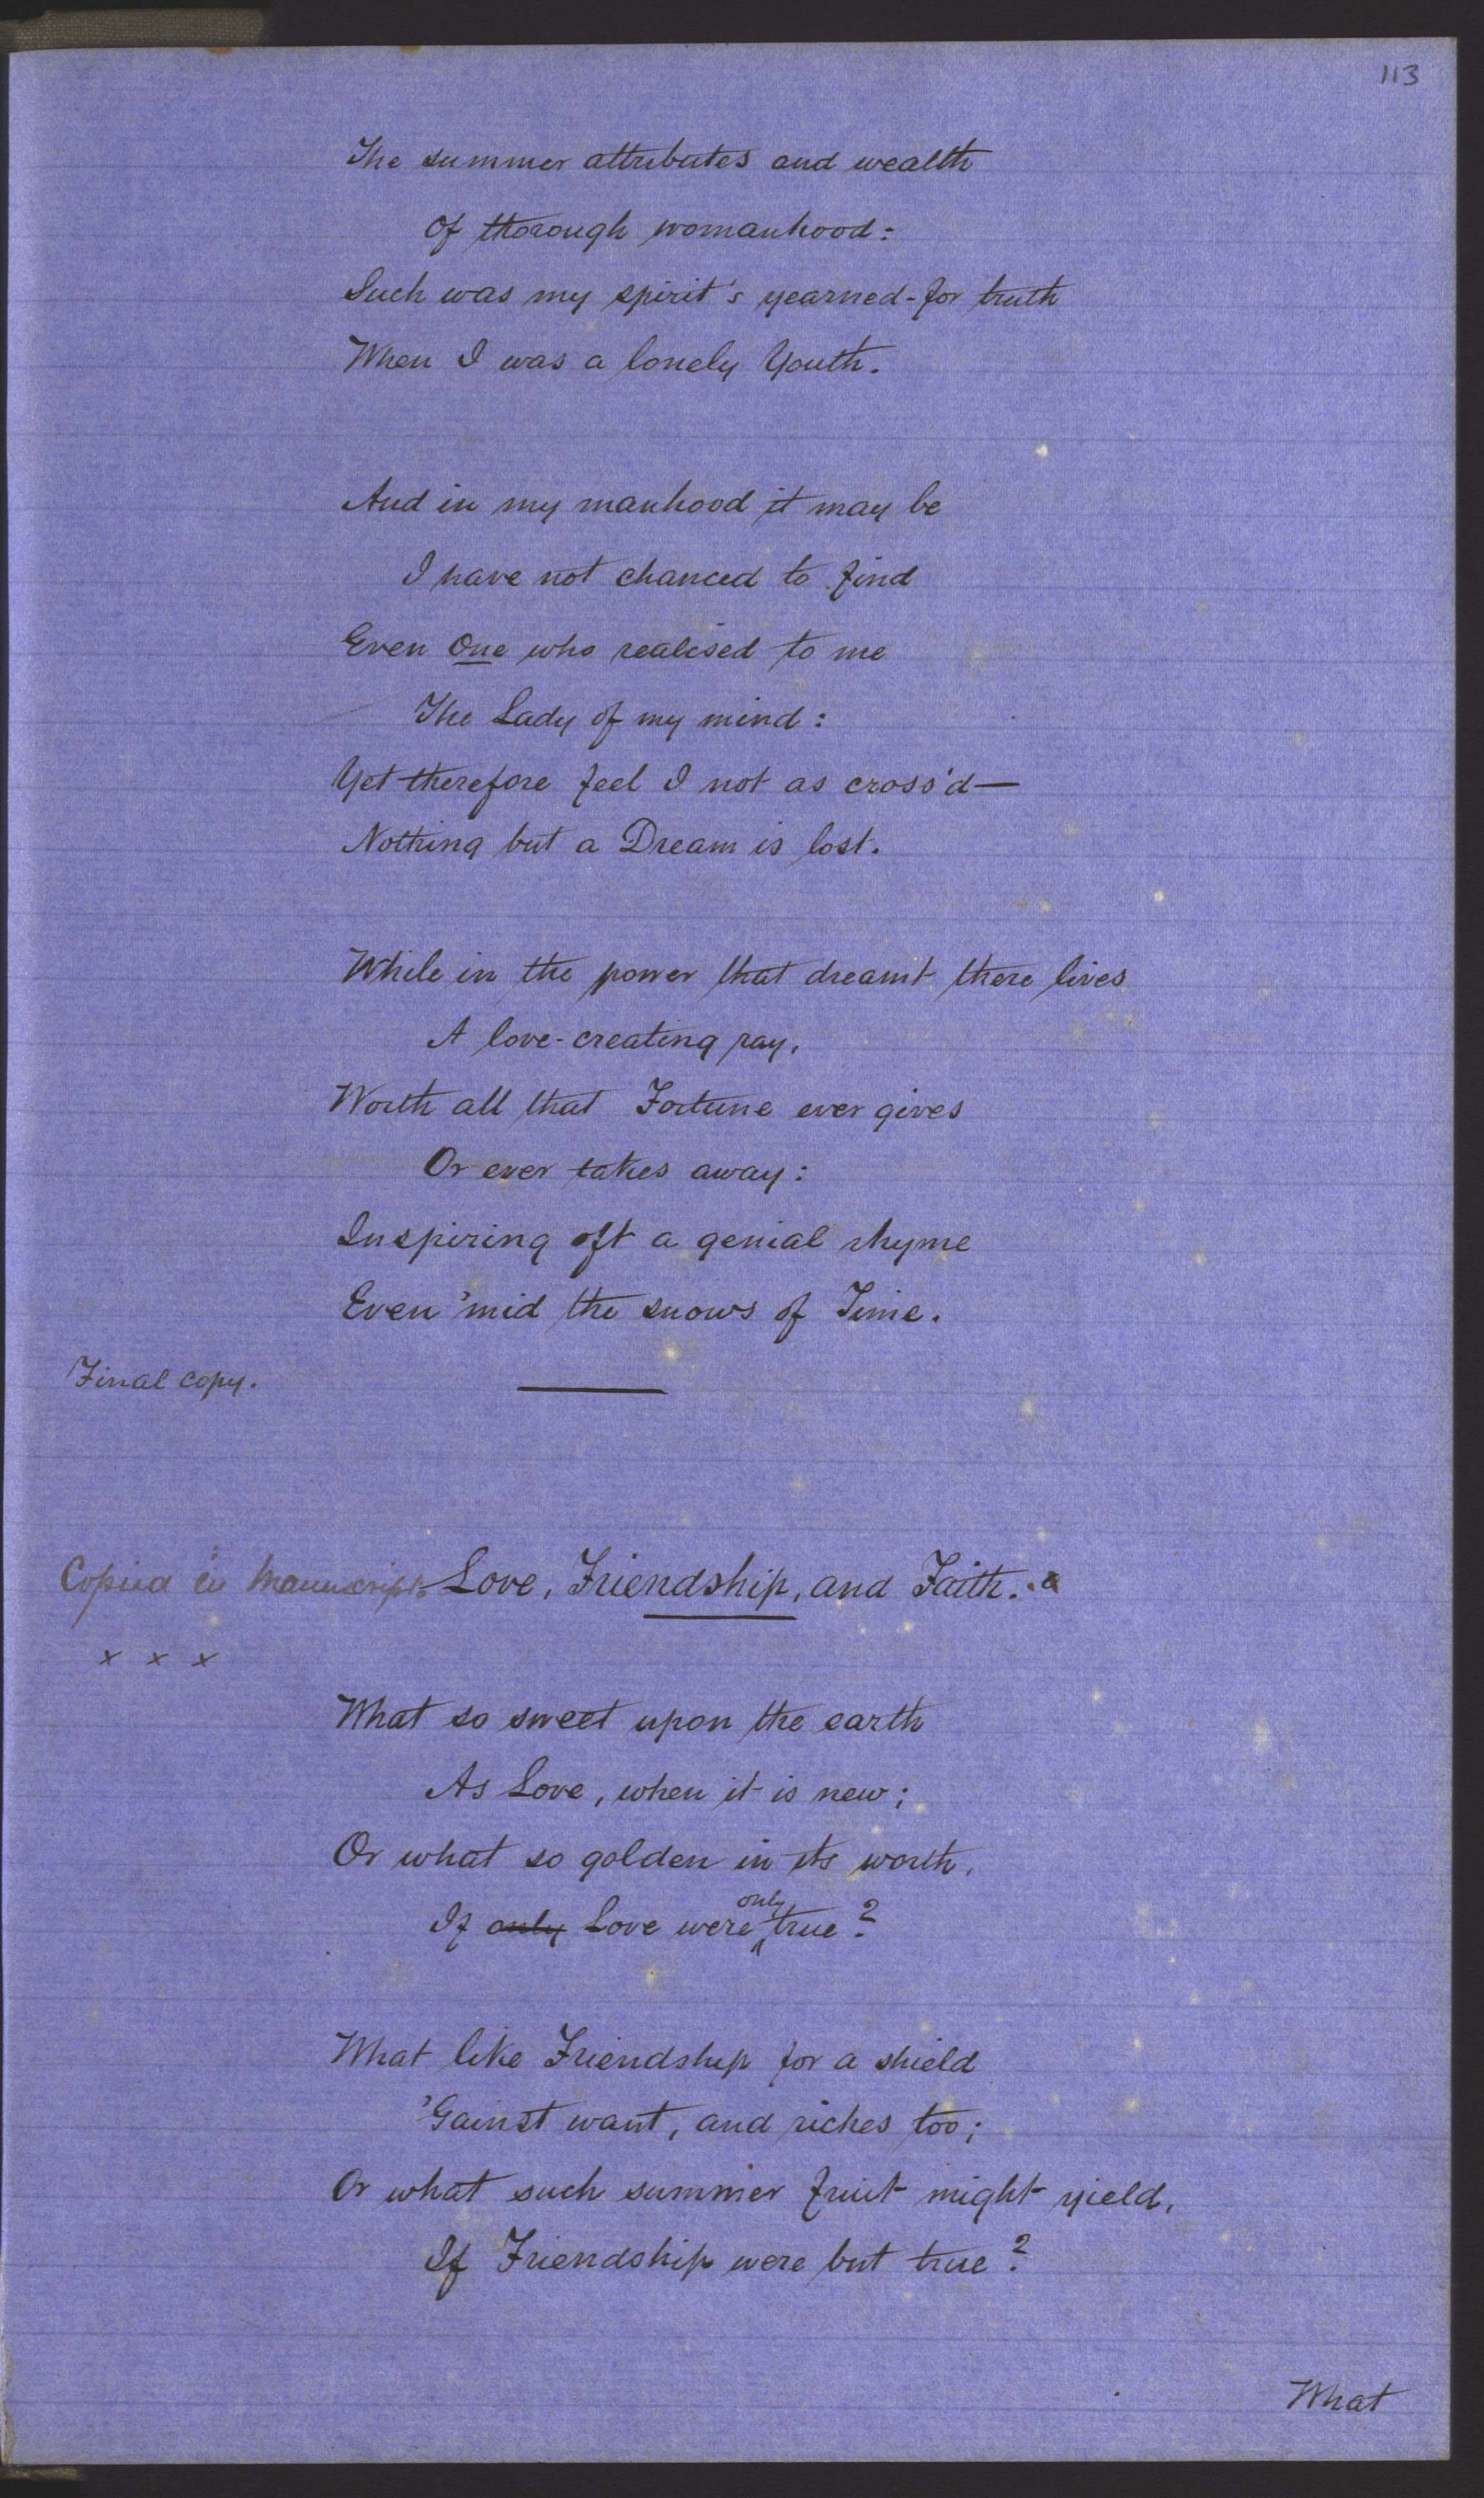 113
The summer attributes and wealth
Of thorough womanhood:
Such was my spirit's yearned-for truth
When I was a lonely Youth.
And in my manhood it may be
I have not chanced to find
Even One who realised to me
The Lady of my mind:
Yet therefore feel I not as cross'd—
Nothing but a Dream is lost.
While in the power that dreamt there lives
A love-creating ray,
Worth all that Fortune ever gives
Or ever takes away:
Inspiring oft a genial rhyme
Even 'mid the snows of Time.
Final copy.
Copied in Manuscript Love, Friendship, and Faith. a
x x x
What so sweet upon the earth
As Love, when it is new;
Or what so golden in its worth,
If only Love were only true?
What like Friendship for a shield
'Gainst want, and riches too;
Or what such summer fruit might yield,
If Friendship were but true?
What